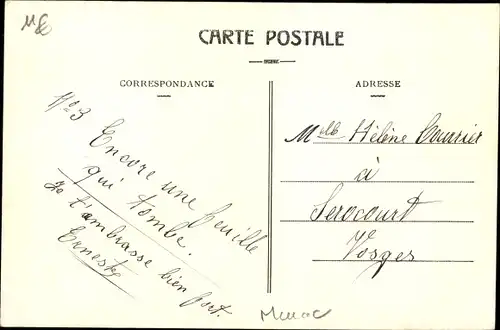 CARTE POSTALE
CORRESPONDANCE
N°3
Encore une feuille
qui tombe.
Je t'ambrasse bien fort.
Ernest
ADRESSE
Melle Hélène Courrier
à
Serocourt
Vosges